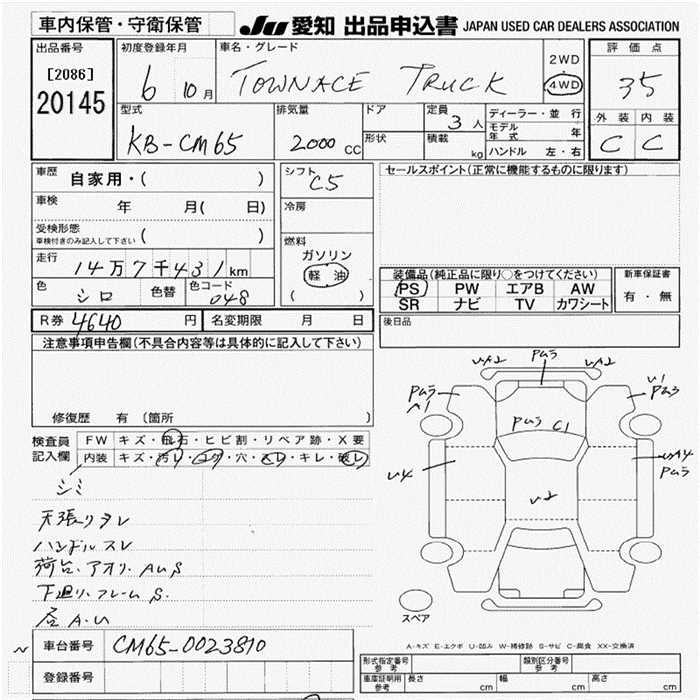 車内保管・守衛保管 JU 愛知 出品申込書 JAPAN USED CAR DEALERS ASSOCIATION
出品番号 初度登録年月 車名・グレード 評価点
[2086] 6 10月 TOWNACE TRUCK 2WD
20145 4WD 35
型式 排気量 ドア 定員 3人 ディーラー・並行 外装 内装
KB-CM65 2000 CC 形状 積載 kg モデル年式 年 C C
ハンドル 左・右
車歴 自家用・( ) シフト C5 セールスポイント(正常に機能するものに限ります)
車検 年 月( 日) 冷房
受検形態 ( )
車検付きのみ記入して下さい
燃料
走行 14万7千431km ガソリン 装備品(純正品に限り○をつけてください) 新車保証書
色 シロ 色替 色コード 048 軽油 PS PW エアB AW 有・無
( ) SR ナビ TV カワシート
R券 4640 円 名変期限 月 日 後日品
注意事項申告欄(不具合内容等は具体的に記入して下さい)
修復歴 有 (箇所 )
検査員 FW キズ・飛石・ヒビ割・リペア跡・X要
記入欄 内装 キズ・汚レ・コゲ・穴・スレ・キレ・破レ
シミ
天張りヨレ
ハンドルスレ
荷台.アオリ.AUS
下廻り.フレームS.
居A.U
UA2 Pムラ UA2
Pムラ U1
A1 Pムラ3
Pムラ C1
U4 U2 UA4
Pムラ
スペア
車台番号 CM65-0023810
登録番号
A-キズ E-エクボ U-凹み W-補修跡 S-サビ C-腐食 XX-交換済
形式指定番号 参考 類別区分番号 参考
車庫証明用 参考 長さ cm 幅 cm 高さ cm